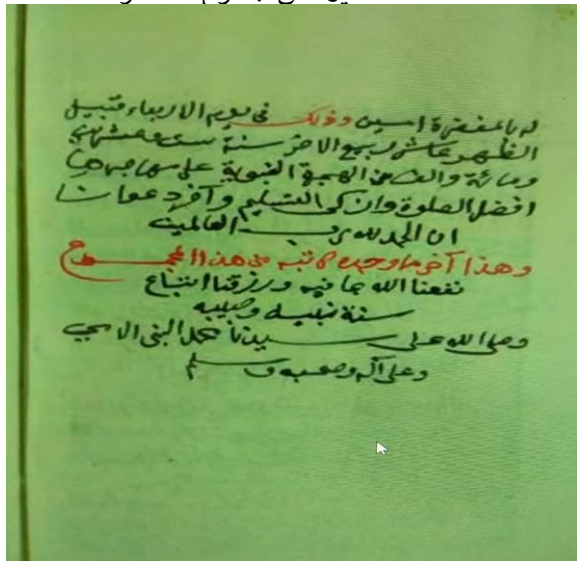 له بالمغفرة امين وذلك في يوم الاربعاء قبيل
الظهر عاشر ربيع الاخر سنة ست وعشرين
ومائة والف من الهجرة النبوية على صاحبها
افضل الصلوة وازكى التسليم وآخر دعوانا
ان الحمد لله رب العالمين
وهذا آخر ما وجده كاتبه من هذا المجموع
نفعنا الله بما فيه ورزقنا اتباع
سنة نبيه وحبيبه
وصلى الله على سيدنا محمد النبي الامي
وعلى آله وصحبه وسلم